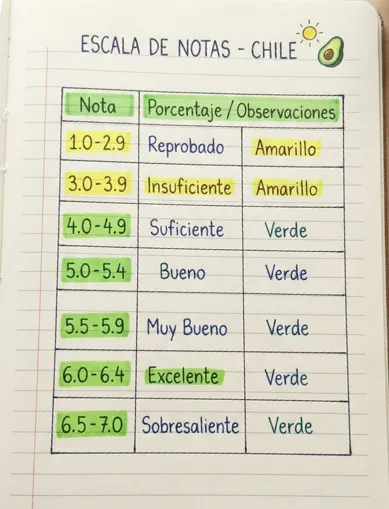 ESCALA DE NOTAS - CHILE
Nota Porcentaje / Observaciones
1.0-2.9 Reprobado Amarillo
3.0-3.9 Insuficiente Amarillo
4.0-4.9 Suficiente Verde
5.0-5.4 Bueno Verde
5.5-5.9 Muy Bueno Verde
6.0-6.4 Excelente Verde
6.5-7.0 Sobresaliente Verde